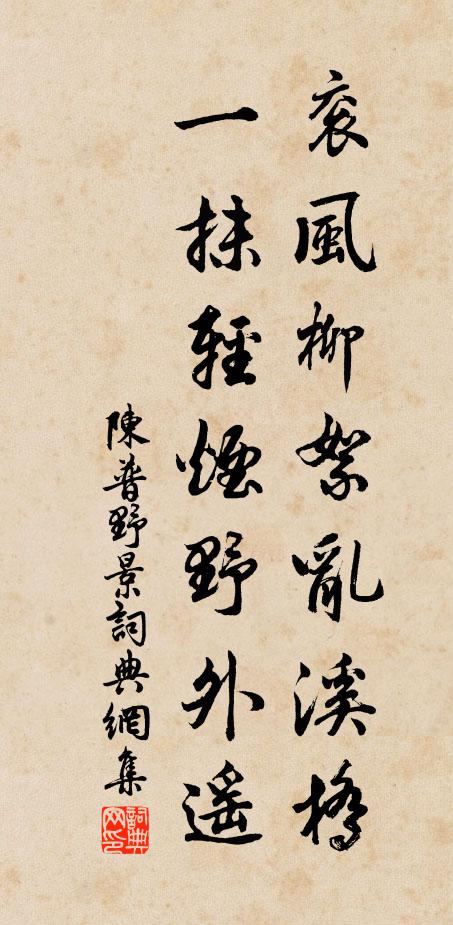 衮風柳絮亂溪橋
一抹輕煙野外遙
陳普野景詞典網集
詞典网印